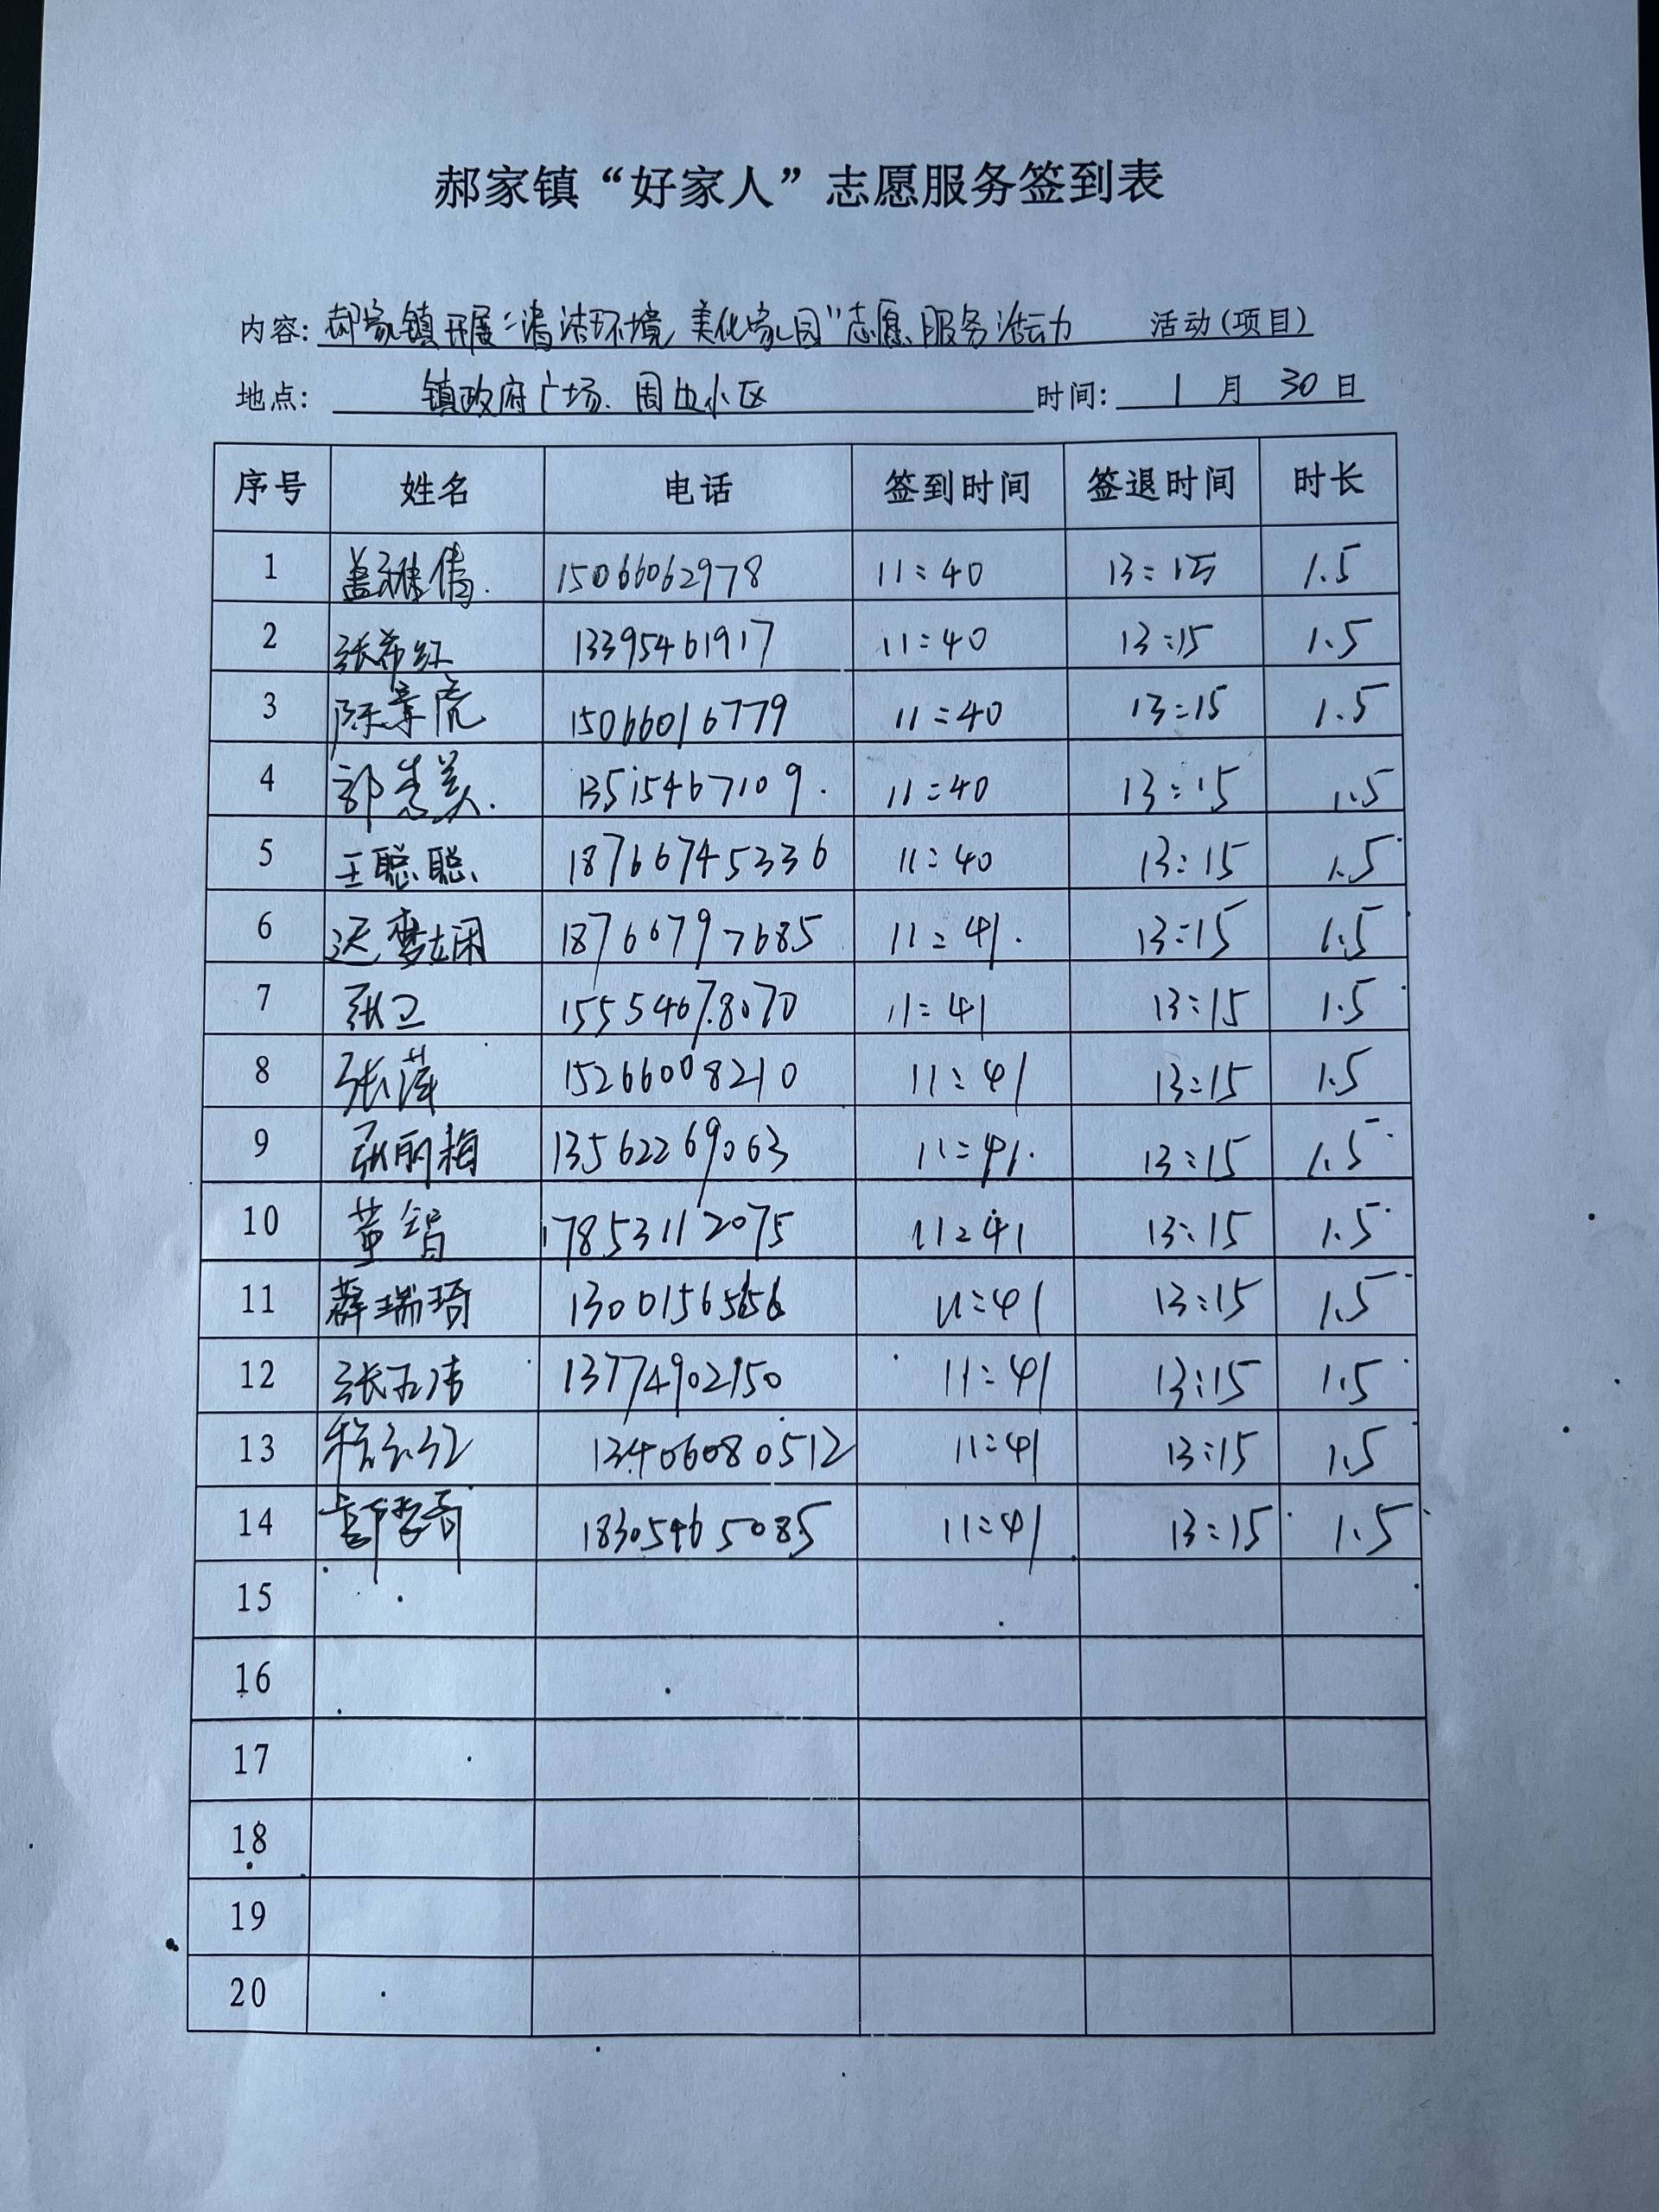 郝家镇“好家人”志愿服务签到表
内容: 郝家镇开展“清洁环境 美化家园”志愿服务活动 活动(项目)
地点: 镇政府广场、周边小区 时间: 1 月 30 日
序号 姓名 电话 签到时间 签退时间 时长
1 盖雅倩 15066062978 11:40 13:15 1.5
2 张希红 13395461917 11:40 13:15 1.5
3 陈景虎 15066016779 11:40 13:15 1.5
4 郭志美 13515467109 11:40 13:15 1.5
5 王聪聪 18766745336 11:40 13:15 1.5
6 迟梦娴 18766797685 11:41 13:15 1.5
7 张卫 15554678070 11:41 13:15 1.5
8 张萍 15266008210 11:41 13:15 1.5
9 张丽梅 13562269063 11:41 13:15 1.5
10 董娟 17853112075 11:41 13:15 1.5
11 薛瑞琦 11:41 13:15 1.5
12 张 13774902150 11:41 13:15 1.5
13 13406080512 11:41 13:15 1.5
14 18305465085 11:41 13:15 1.5
15
16
17
18
19
20